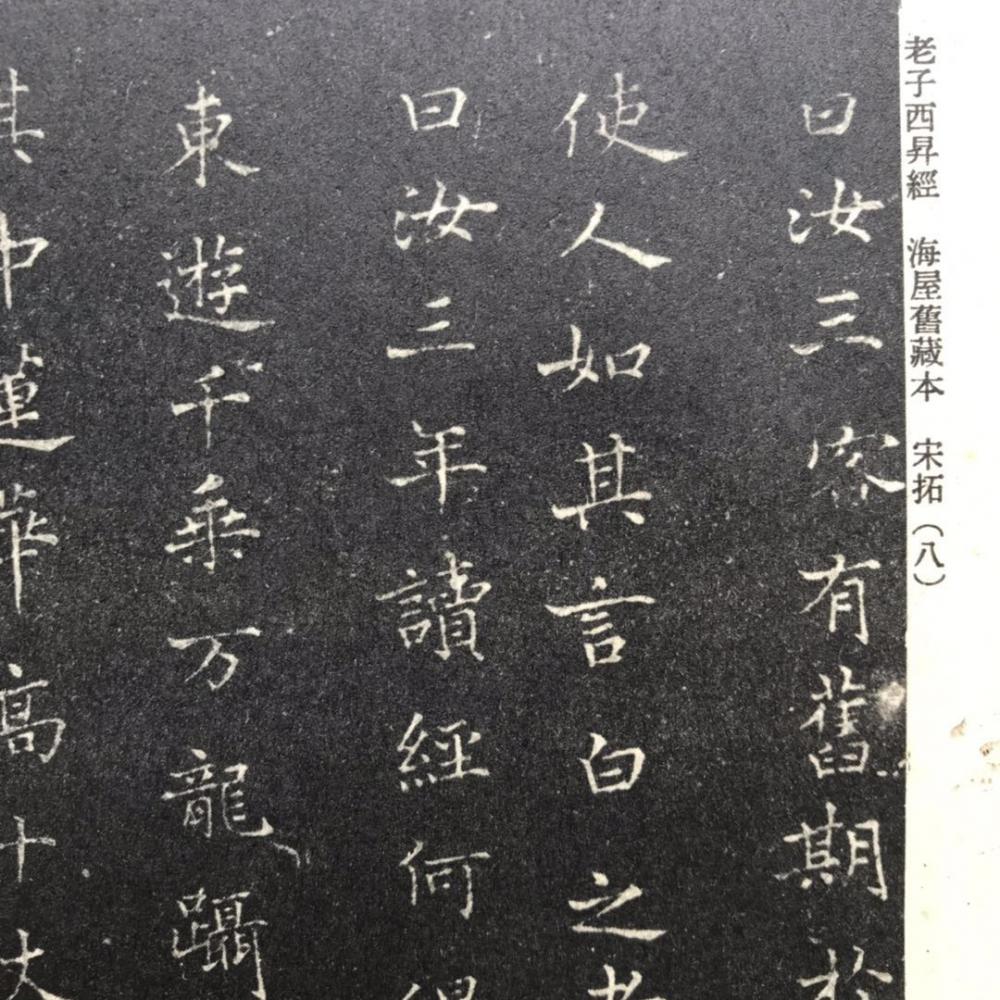 老子西昇經 海屋舊藏本 宋拓（八）
曰汝三容有舊期於
使人如其言白之老
曰汝三年讀經何得
東遊千乘万龍躡
其中蓮華高十丈